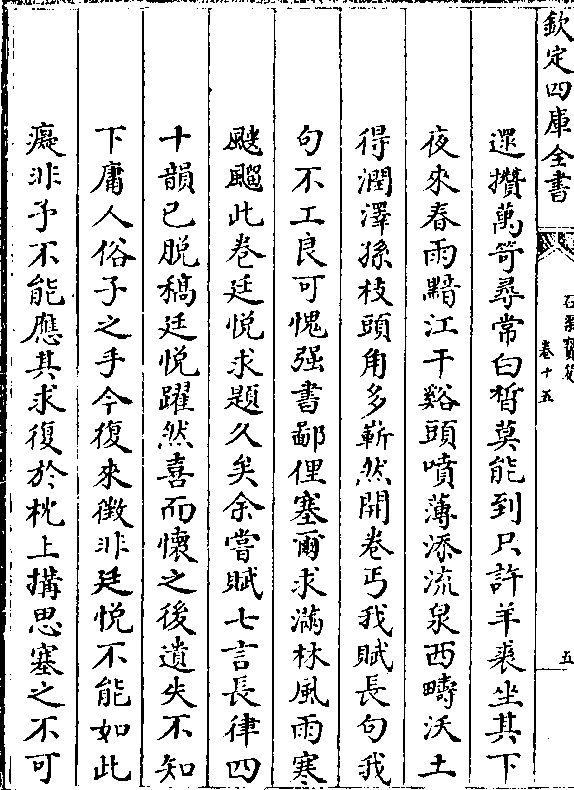 欽定四庫全書
石渠寶笈
卷十五
五
還攢萬笴尋常白皙莫能到只許羊裘坐其下
夜來春雨黯江干谿頭噴薄添流泉西疇沃土
得潤澤孫枝頭角多嶄然開卷丐我賦長句我
句不工良可愧强書鄙俚塞爾求滿林風雨寒
颼飀此卷廷悦求題久矣余嘗賦七言長律四
十韻已脱稿廷悦躍然喜而懷之後遺失不知
下庸人俗子之手今復來徵非廷悦不能如此
癡非予不能應其求復於枕上搆思塞之不可